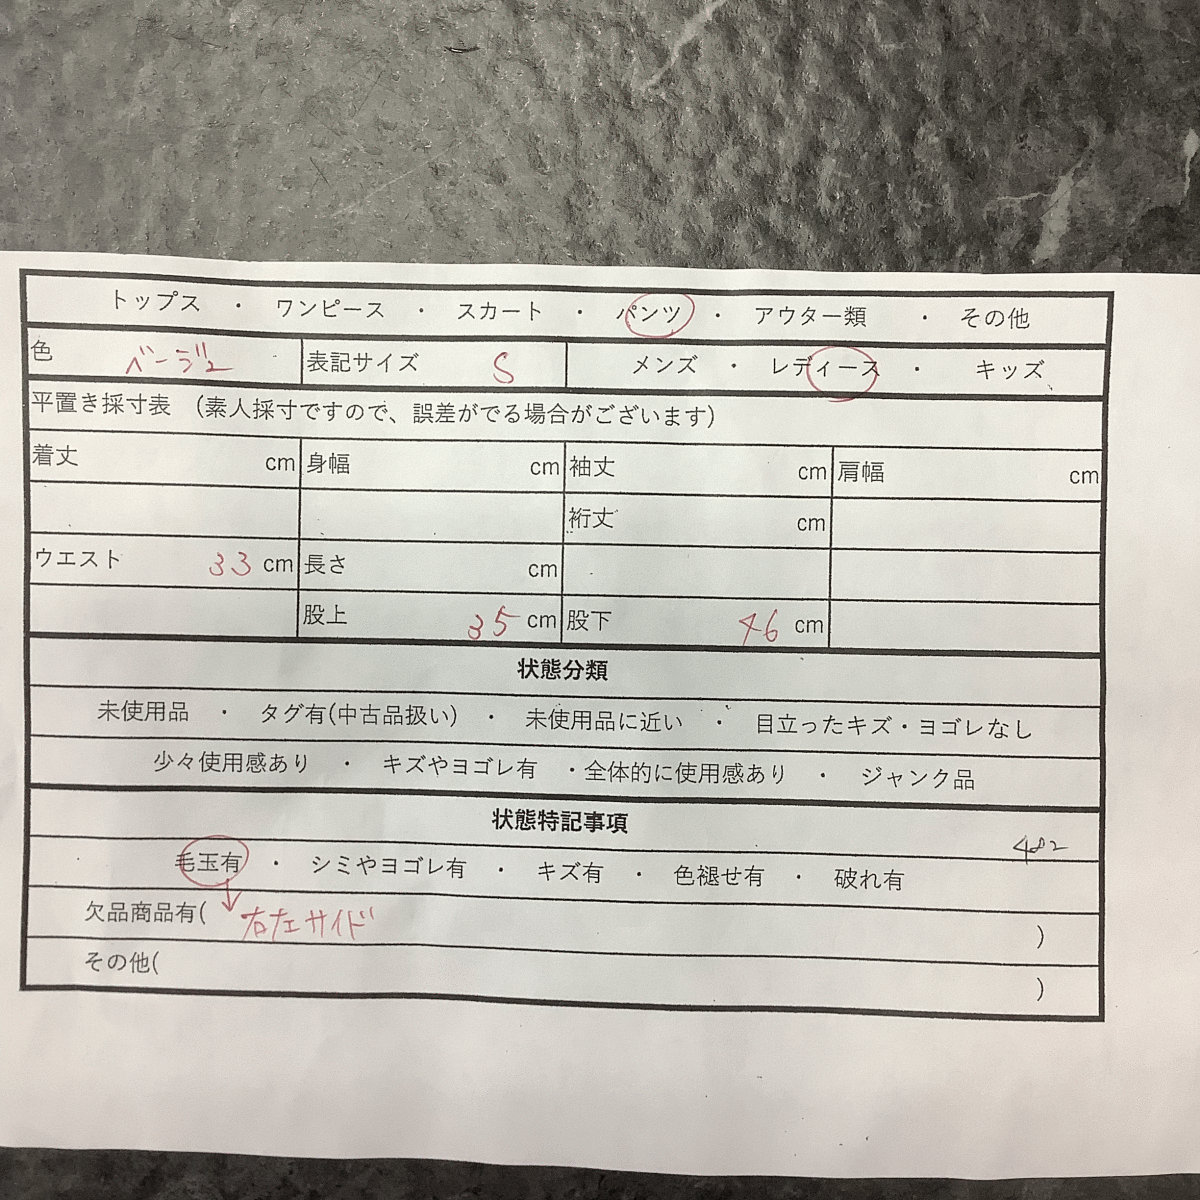 トップス ・ ワンピース ・ スカート ・ パンツ ・ アウター類 ・ その他
色 ベージュ 表記サイズ S メンズ ・ レディース ・ キッズ
平置き採寸表 (素人採寸ですので、誤差がでる場合がございます)
着丈 cm 身幅 cm 袖丈 cm 肩幅 cm
裄丈 cm
ウエスト 33 cm 長さ cm
股上 35 cm 股下 46 cm
状態分類
未使用品 ・ タグ有(中古品扱い) ・ 未使用品に近い ・ 目立ったキズ・ヨゴレなし
少々使用感あり ・ キズやヨゴレ有 ・全体的に使用感あり ・ ジャンク品
状態特記事項
482
毛玉有 ・ シミやヨゴレ有 ・ キズ有 ・ 色褪せ有 ・ 破れ有
欠品商品有( ↓ 右左サイド )
その他( )